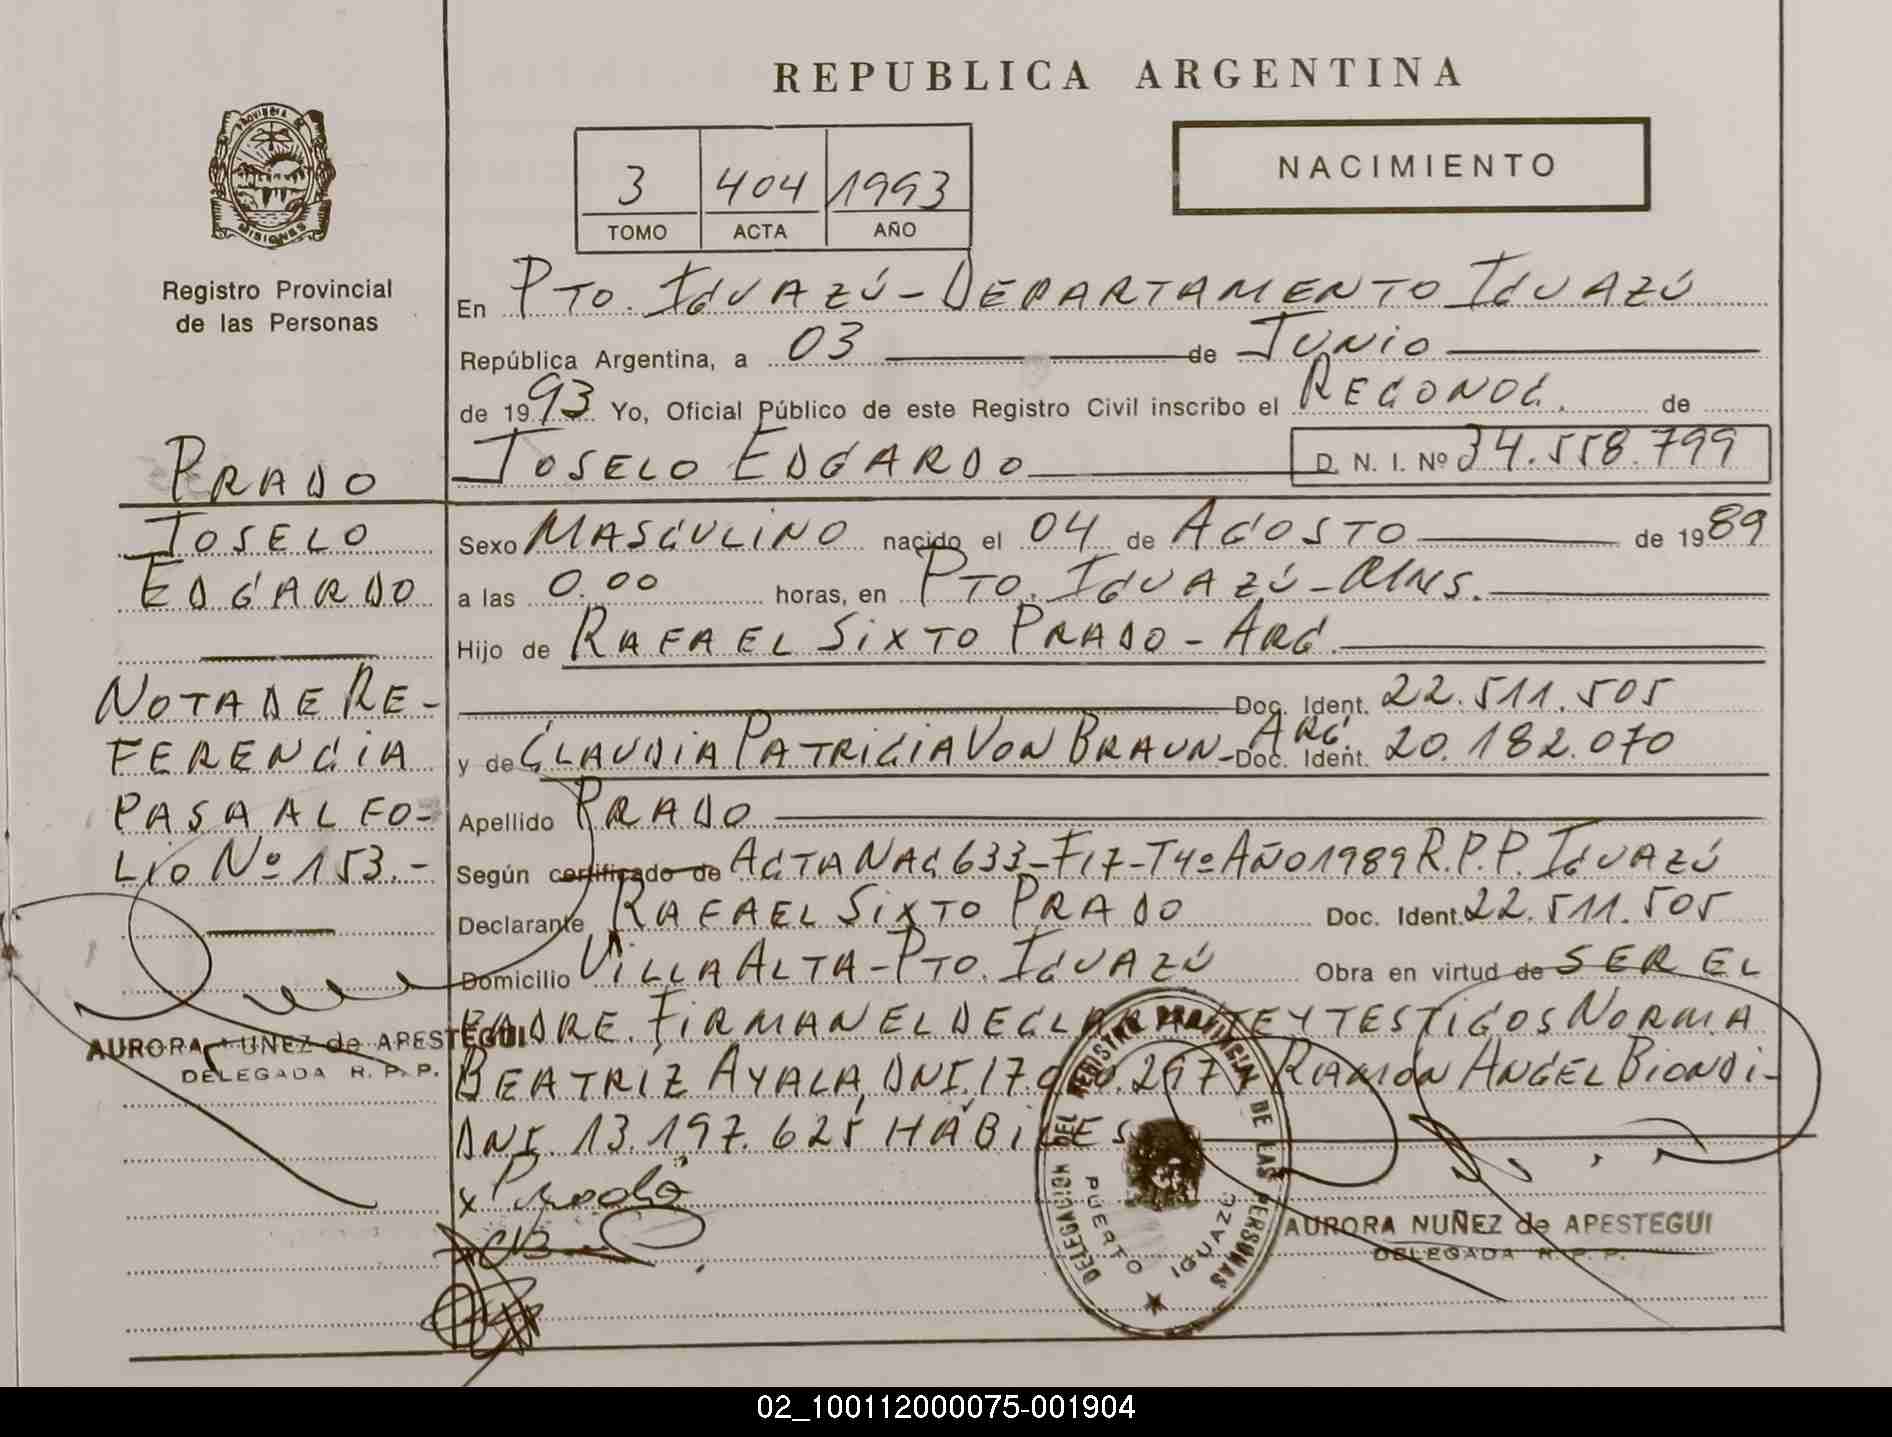 REPUBLICA ARGENTINA
PROVINCIA DE
MISIONES
Registro Provincial
de las Personas
3 404 1993
TOMO ACTA AÑO
NACIMIENTO
En PTO. IGUAZÚ - DEPARTAMENTO IGUAZÚ
República Argentina, a 03 de JUNIO
de 1993 Yo, Oficial Público de este Registro Civil inscribo el RECONOC. de
JOSELO EDGARDO D. N. I. Nº 34.558.799
Sexo MASCULINO nacido el 04 de AGOSTO de 1989
a las 0.00 horas, en PTO. IGUAZÚ - MNS.
Hijo de RAFAEL SIXTO PRADO - ARG.
Doc. Ident. 22.511.505
y de CLAUDIA PATRICIA VON BRAUN - ARG. Doc. Ident. 20.182.070
Apellido PRADO
Según certificado de ACTA NAC 633 - F17 - T4º AÑO 1989 R.P.P. IGUAZÚ
Declarante RAFAEL SIXTO PRADO Doc. Ident. 22.511.505
Domicilio VILLA ALTA - PTO. IGUAZÚ Obra en virtud de SER EL
PADRE. FIRMAN EL DECLARANTE Y TESTIGOS NORMA
BEATRIZ AYALA, DNI. 17. 297 RAMÓN ANGEL BIONDI -
DNI. 13.197.625 HÁBILES
x Prado
PRADO
JOSELO
EDGARDO
NOTA DE RE-
FERENCIA
PASA AL FO-
LIO Nº 153.-
AURORA NUÑEZ de APESTEGUI
DELEGADA R. P. P.
DELEGACION DEL REGISTRO PROVINCIAL DE LAS PERSONAS
PUERTO IGUAZU
AURORA NUÑEZ de APESTEGUI
DELEGADA R. P. P.
02_100112000075-001904